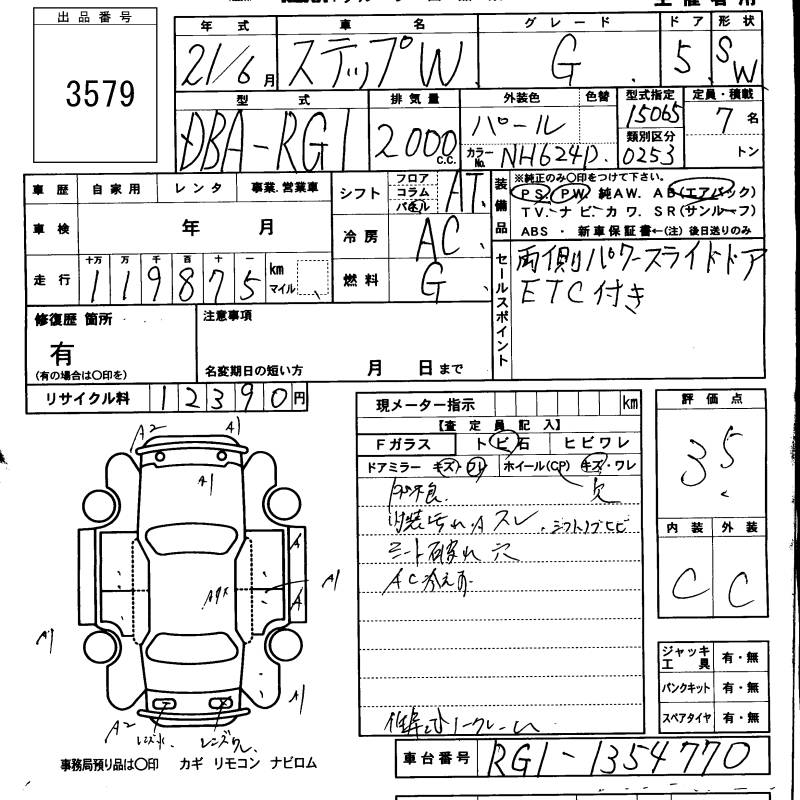 出品番号
3579
年式 車名 グレード ドア 形状
21/6月 ステップW. G. 5. SW
型式 排気量 外装色 色替 型式指定 定員・積載
15065 7名
DBA-RG1 2000C.C. パール 類別区分
カラーNo. NH624P. 0253 トン
車歴 自家用 レンタ 事業.営業車
車検 年 月
走行 十万 万 千 百 十 一
119875 km マイル
シフト フロア コラム パネル AT.
冷房 AC.
燃料 G.
装備品
※純正のみ〇印をつけて下さい。
PS. PW. 純AW. AB(エアバック)
TV.ナビ.カワ.SR(サンルーフ)
ABS ・ 新車保証書←(注)後日送りのみ
セールスポイント
両側パワースライドドア
ETC付き
修復歴 箇所
有
(有の場合は〇印を)
注意事項
名変期日の短い方 月 日まで
リサイクル料 12390円
現メーター指示 km
【査定員記入】
Fガラス トビ石 ヒビワレ
ドアミラー キズ・ワレ ホイール(CP) キズ・ワレ
穴
内装汚れ.A スレ . シフトノブヒビ
シート破れ 穴
AC冷えず
評価点
3.5
内装 外装
C C
ジャッキ工具 有・無
パンクキット 有・無
スペアタイヤ 有・無
A2 A1
A1
A
A A1
A1 A1
A2
事務局預り品は〇印 カギ リモコン ナビロム
車台番号 RG1-1354770